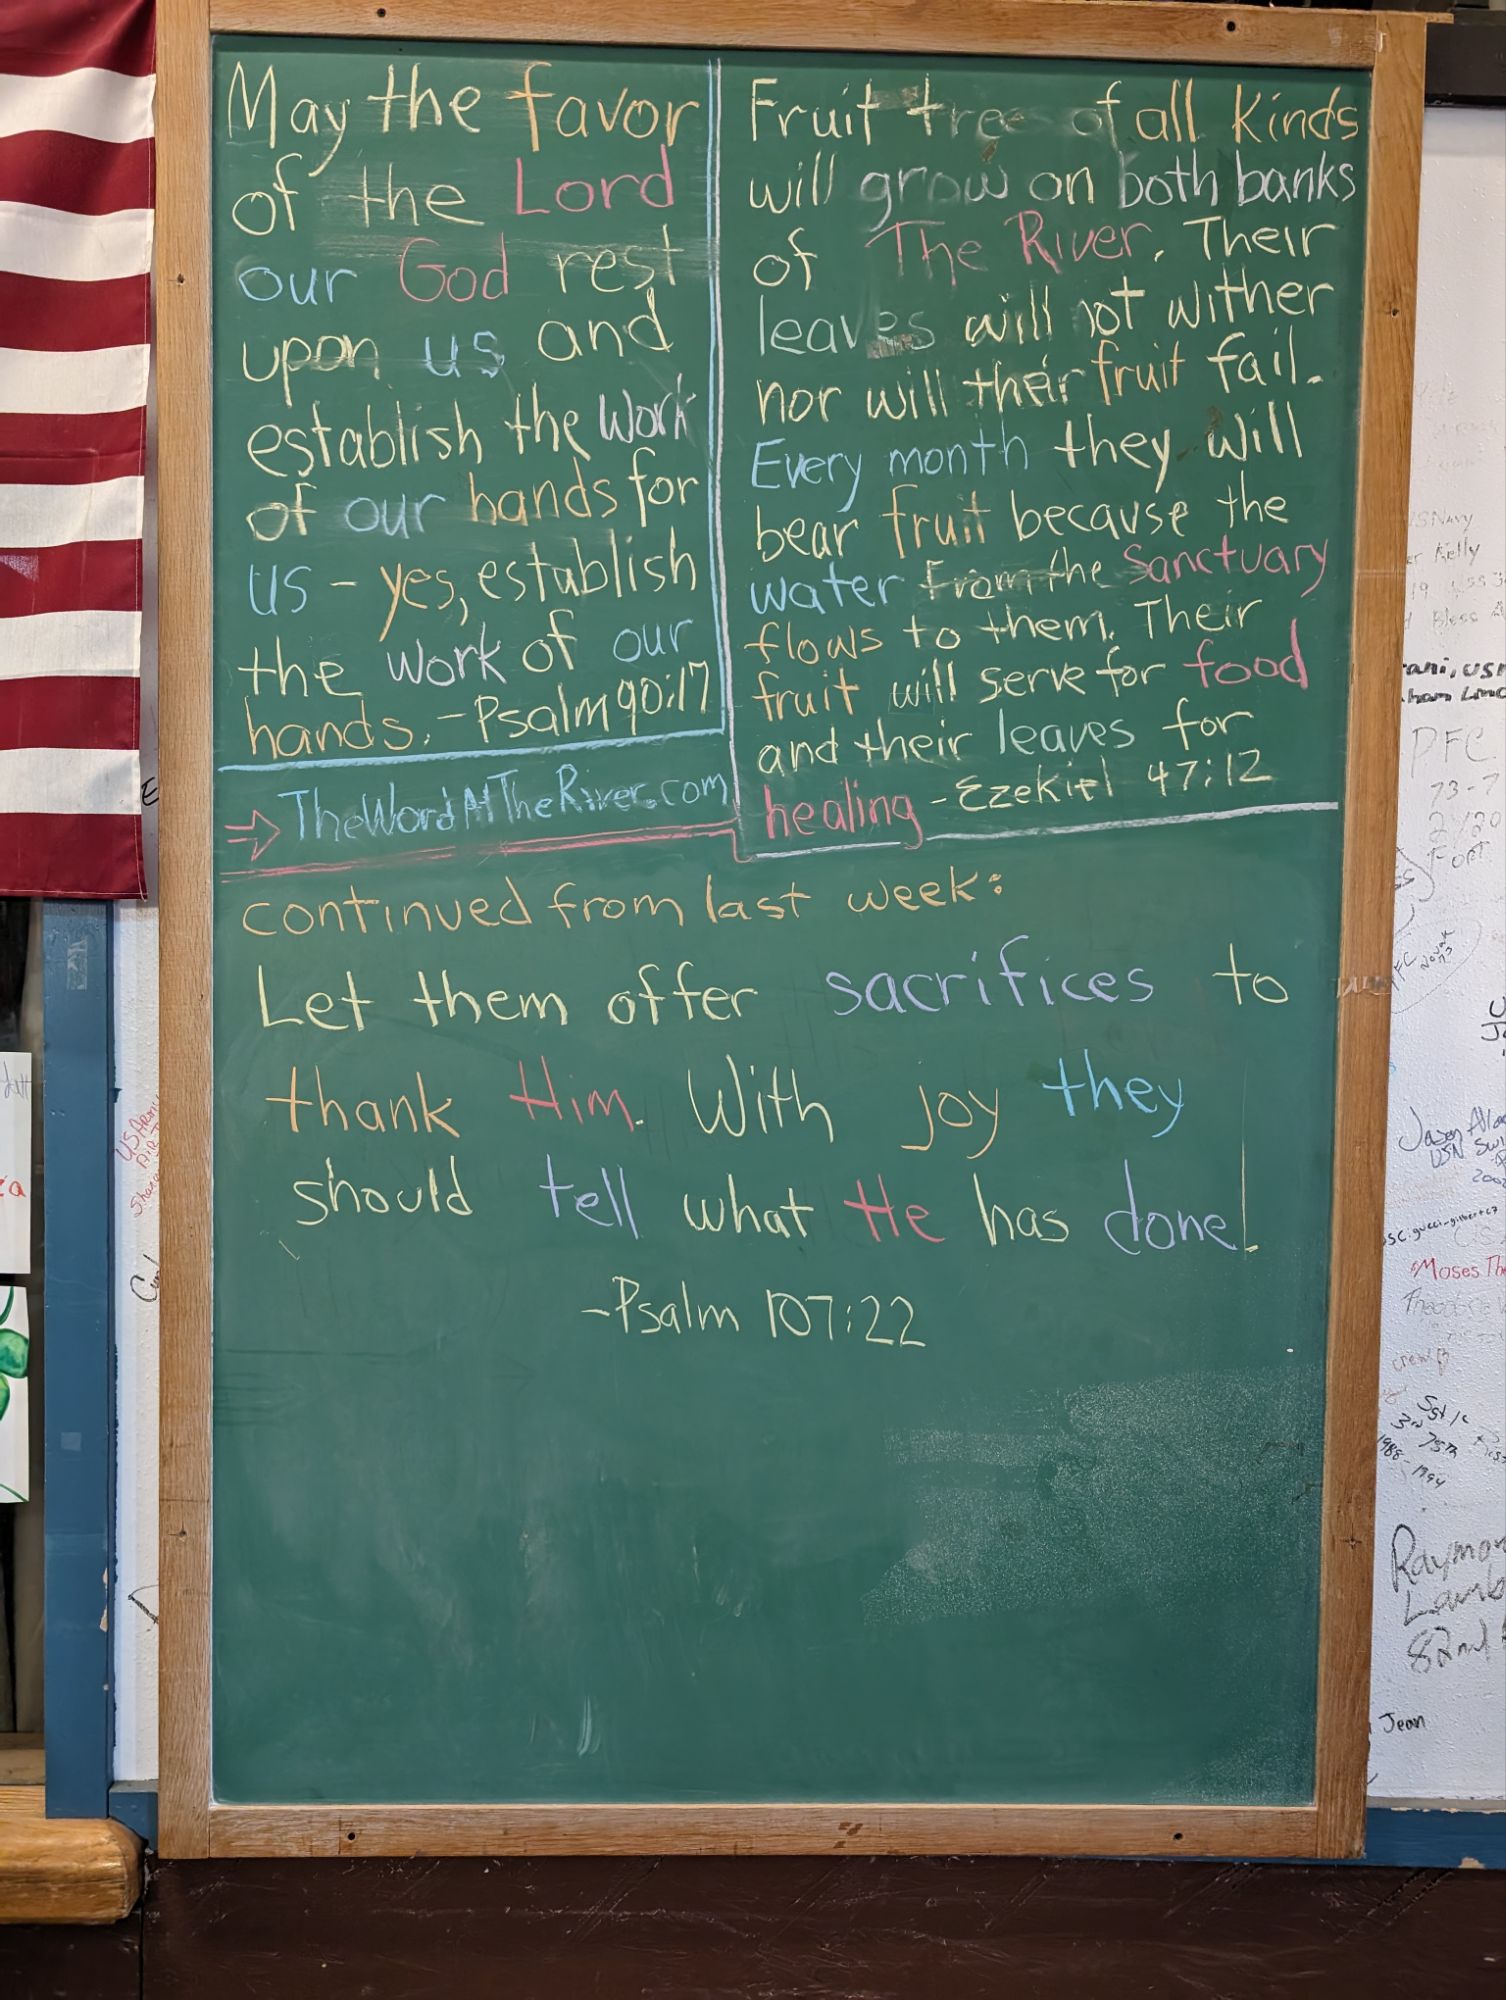 May the favor
of the Lord
our God rest
upon us and
establish the work
of our hands for
us - yes, establish
the work of our
hands. - Psalm 90:17
→ TheWordAtTheRiver.com
Fruit tree of all kinds
will grow on both banks
of The River. Their
leaves will not wither
nor will their fruit fail.
Every month they will
bear fruit because the
water from the Sanctuary
flows to them. Their
fruit will serve for food
and their leaves for
healing - Ezekiel 47:12
continued from last week:
Let them offer sacrifices to
thank Him. With joy they
should tell what He has done!
-Psalm 107:22
US Army
USNavy
Kelly
Bless
PFC
73-7
FORT
Jason
USN
Moses
Theodore
3rd 75th
1988-1994
Raymon
Lamb
82nd
Jean